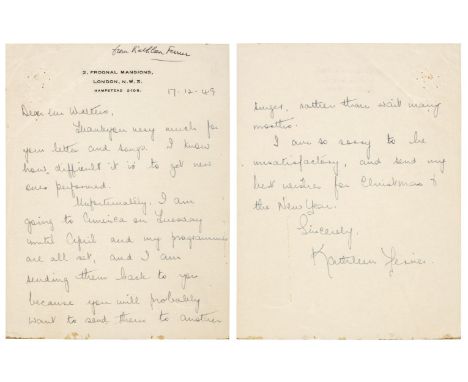 from Kathleen Ferrier
2, FROGNAL MANSIONS,
LONDON, N.W.3.
HAMPSTEAD 2108.
17-12-49
Dear
Thankyou very much for
your letter and songs. I know
how difficult it is to get new
ones performed.
Unfortunately, I am
going to America on Tuesday
until April and my programmes
are all set, and I am
sending them back to you
because you will probably
want to send them to another
singer, rather than wait many
months.
I am so sorry to be
unsatisfactory, and send my
best wishes for Christmas &
the New Year.
Sincerely,
Kathleen Ferrier.